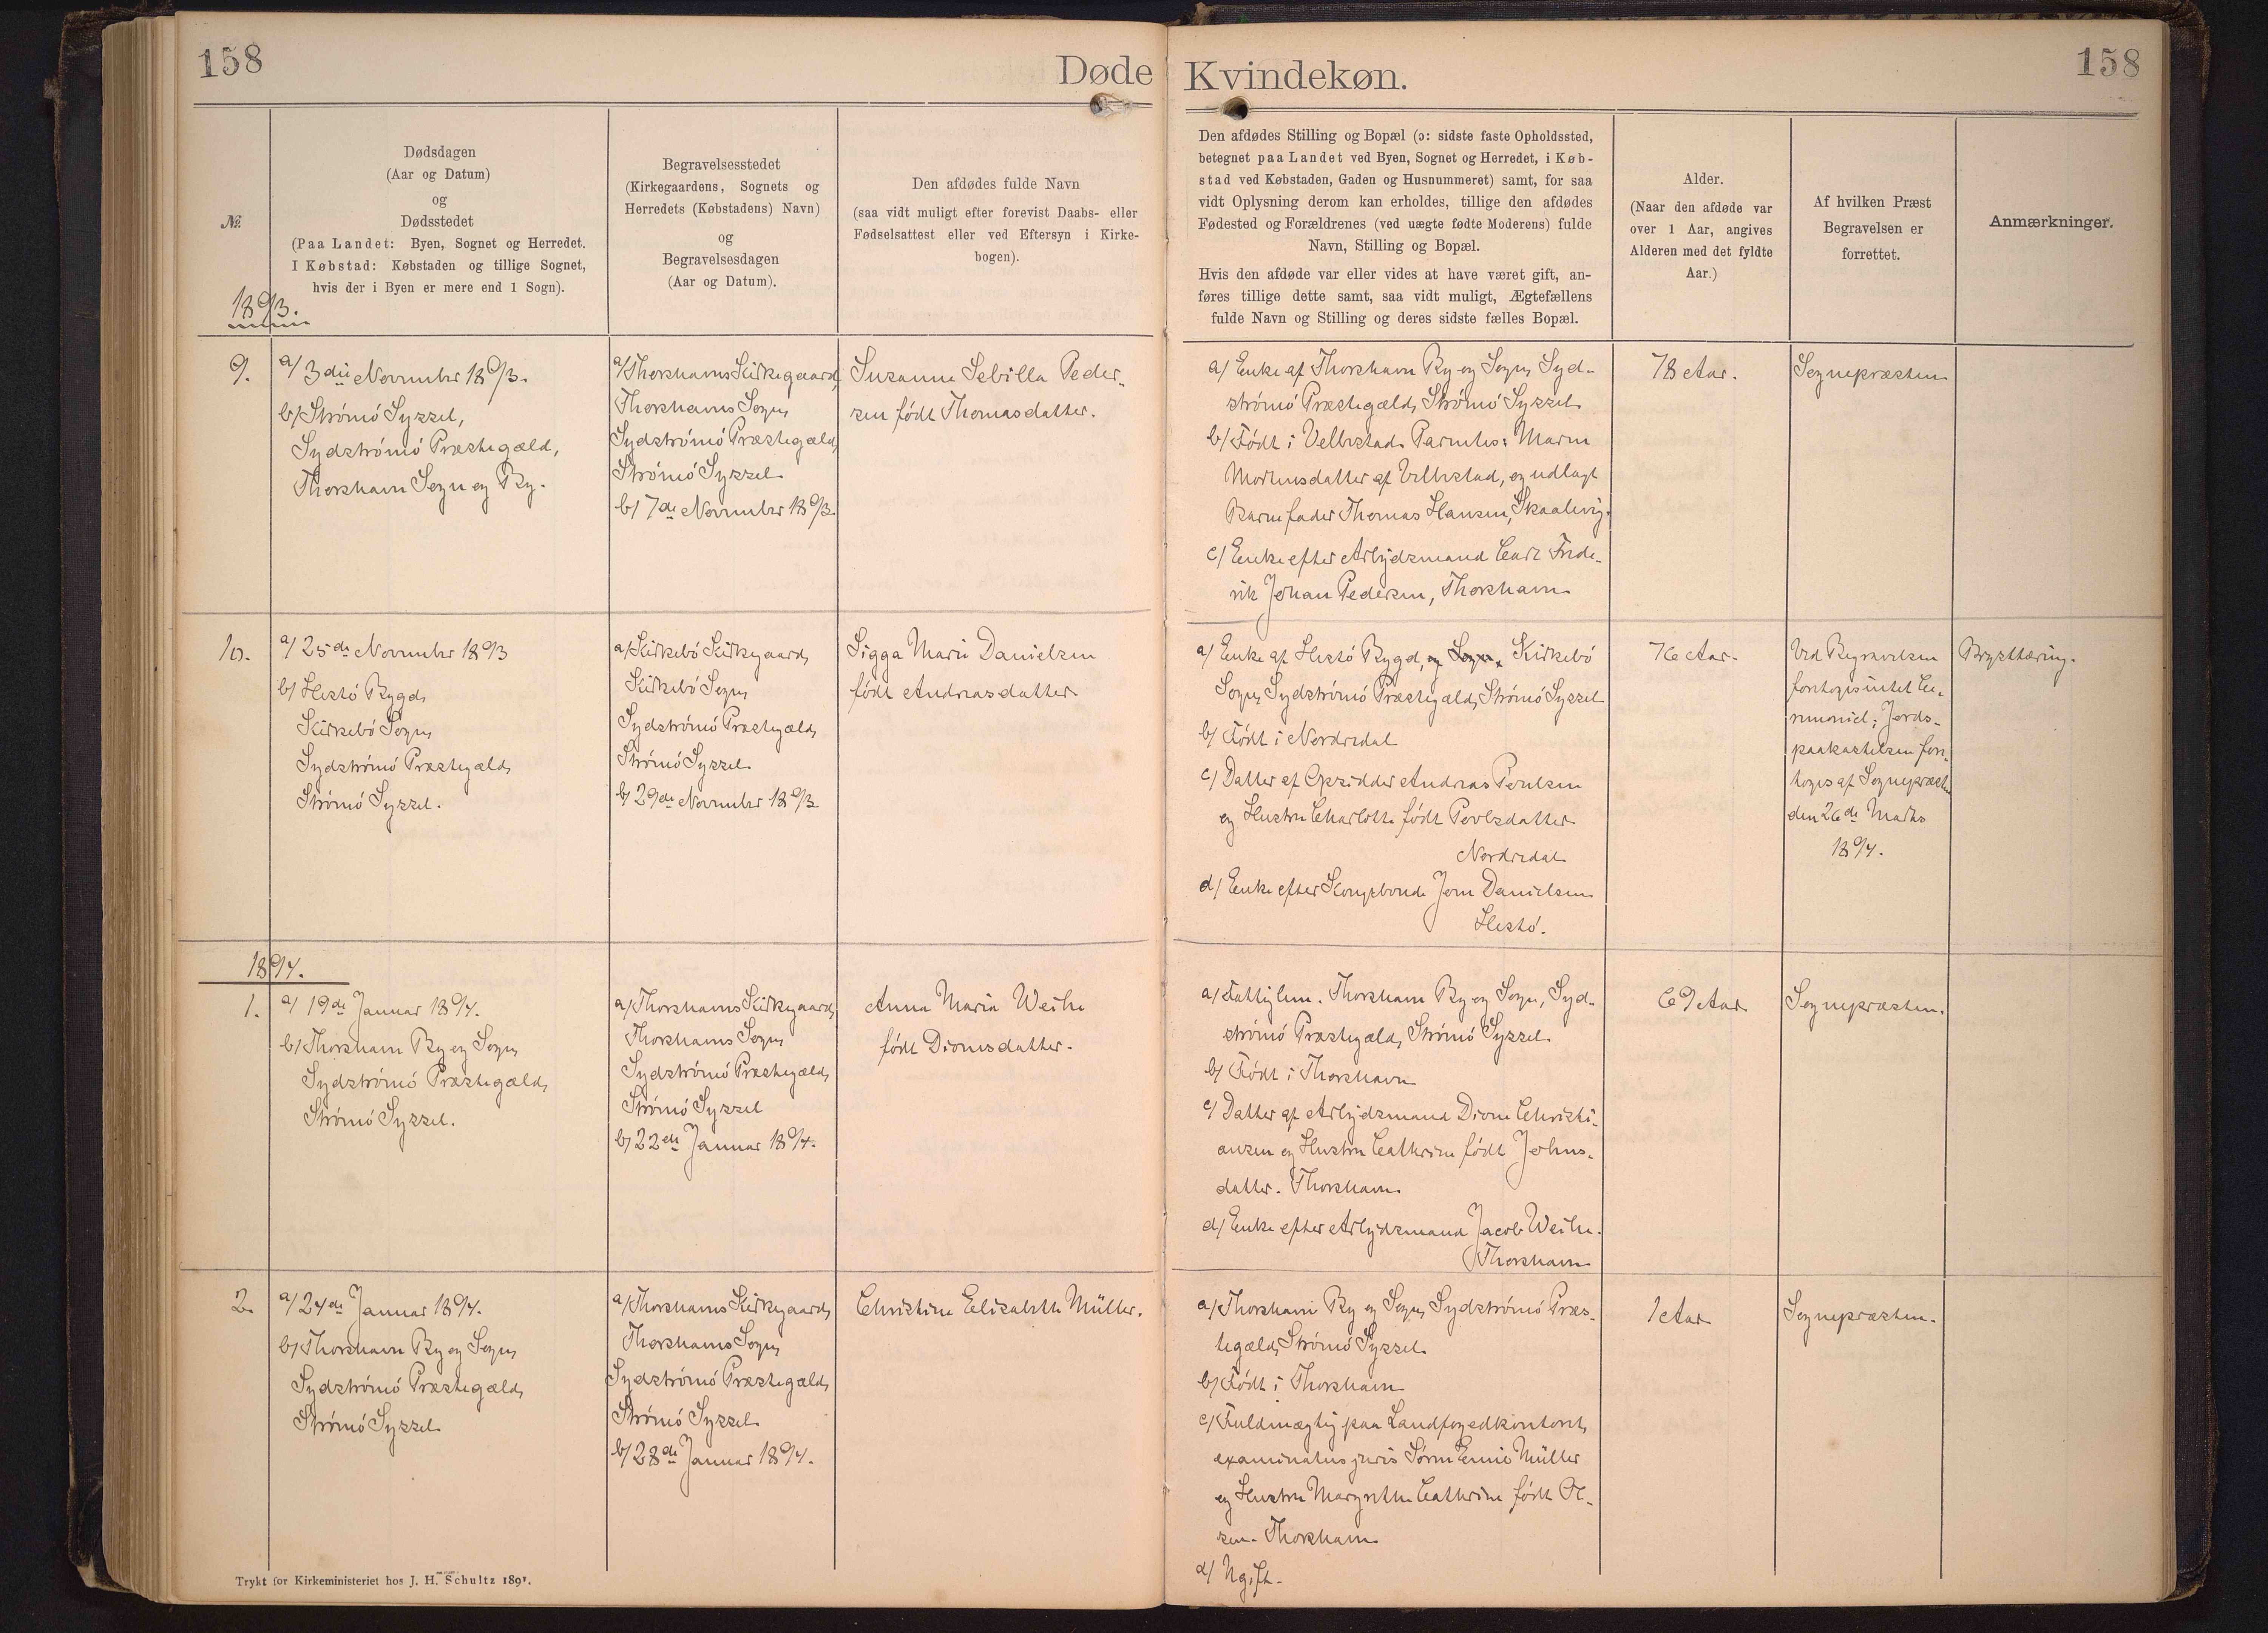 158
Døde Kvindekøn.
158
№
Dødsdagen
(Aar og Datum)
og
Dødsstedet
(Paa Landet: Byen, Sognet og Herredet.
I Købstad: Købstaden og tillige Sognet,
hvis der i Byen er mere end 1 Sogn).
Begravelsesstedet
(Kirkegaardens, Sognets og
Herredets (Købstadens) Navn)
og
Begravelsesdagen
(Aar og Datum).
Den afdødes fulde Navn
(saa vidt muligt efter forevist Daabs- eller
Fødselsattest eller ved Eftersyn i Kirke-
bogen).
Den afdødes Stilling og Bopæl (ɔ: sidste faste Opholdssted,
betegnet paa Landet ved Byen, Sognet og Herredet, i Køb-
stad ved Købstaden, Gaden og Husnummeret) samt, for saa
vidt Oplysning derom kan erholdes, tillige den afdødes
Fødested og Forældrenes (ved uægte fødte Moderens) fulde
Navn, Stilling og Bopæl.
Hvis den afdøde var eller vides at have været gift, an-
føres tillige dette samt, saa vidt muligt, Ægtefællens
fulde Navn og Stilling og deres sidste fælles Bopæl.
Alder.
(Naar den afdøde var
over 1 Aar, angives
Alderen med det fyldte
Aar.)
Af hvilken Præst
Begravelsen er
forrettet.
Anmærkninger.
1893.
9.
a/ 3die November 1893.
b/ Strömö Syssel,
Sydströmö Præstegæld,
Thorshavn Sogn og By.
a/ Thorshavns Kirkegaard,
Thorshavns Sogn,
Sydströmö Præstegæld,
Strömö Syssel
b/ 7de November 1893.
Susanne Sebilla Peder-
sen født Thomasdatter.
a/ Enke af Thorshavn By og Sogn, Syd-
strömö Præstegæld, Strömö Syssel
b/ Født i Velbestad. Parentes: Maren
Mortensdatter af Velbestad, og udlagt
Barnefader Thomas Hansen, Skaalevig.
c/ Enke efter Arbejdsmand Carl Frede-
rik Johan Pedersen, Thorshavn
78 Aar.
Sognepræsten
10.
a/ 25de November 1893
b/ Hestö Bygd,
Kirkebö Sogn,
Sydströmö Præstegæld,
Strömö Syssel.
a/ Kirkebö Kirkegaard,
Kirkebö Sogn,
Sydströmö Præstegæld,
Strömö Syssel
b/ 29de November 1893
Sigga Marie Danielsen
født Andreasdatter
a/ Enke af Hestö Bygd, og Sogn, Kirkebö
Sogn, Sydströmö Præstegæld, Strömö Syssel
b/ Født i Nordredal
c/ Datter af Opsidder Andreas Poulsen
og Hustru Charlotte født Poulsdatter
Nordredal
d/ Enke efter Kongsbonde Joen Danielsen
Hestö.
76 Aar.
Ved Begravelsen
foretoges intet Ce-
remoniel; Jords-
paakastelsen fore-
toges af Sognepræsten
den 26de Marts
1894.
Brysttæring.
1894.
1.
a/ 19de Januar 1894.
b/ Thorshavn By og Sogn,
Sydströmö Præstegæld,
Strömö Syssel.
a/ Thorshavns Kirkegaard,
Thorshavns Sogn,
Sydströmö Præstegæld,
Strömö Syssel
b/ 22de Januar 1894.
Anna Maria Weihe
født Dionesdatter.
a/ Fattiglem. Thorshavn By og Sogn, Syd-
strömö Præstegæld, Strömö Syssel.
b/ Født i Thorshavn
c/ Datter af Arbejdsmand Dione Christi-
ansen og Hustru Cathrine født Johns-
datter. Thorshavn
d/ Enke efter Arbejdsmand Jacob Weihe.
Thorshavn
69 Aar
Sognepræsten.
2.
a/ 24de Januar 1894.
b/ Thorshavn By og Sogn,
Sydströmö Præstegæld,
Strömö Syssel
a/ Thorshavns Kirkegaard,
Thorshavns Sogn,
Sydströmö Præstegæld,
Strömö Syssel
b/ 28de Januar 1894.
Christine Elisabeth Müller.
a/ Thorshavn By og Sogn, Sydströmö Præs-
tegæld, Strömö Syssel
b/ Født i Thorshavn
c/ Fuldmægtig paa Landfogedkontoret,
examinatus juris Sören Emil Müller
og Hustru Margrethe Cathrine født Ol-
sen. Thorshavn
d/ Ugift.
1 Aar
Sognepræsten.
Trykt for Kirkeministeriet hos J. H. Schultz 1891.